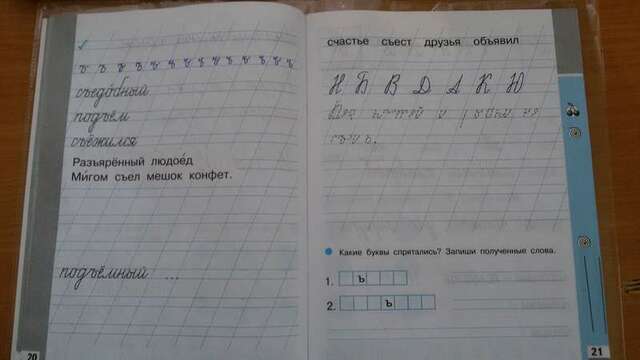 ъ ъ ъ ъ ъ ъ ъ ъ ъ ъ ъ ъ ъ ъ ъ ъ ъ
съедобный
подъём
съёжился
Разъярённый людоед
Мигом съел мешок конфет.
подъёмный ...
20
счастье съест друзья объявил
Н Б В Д А К Ю
Без и не
1. ъ
2. ъ
Какие буквы спрятались? Запиши полученные слова.
21